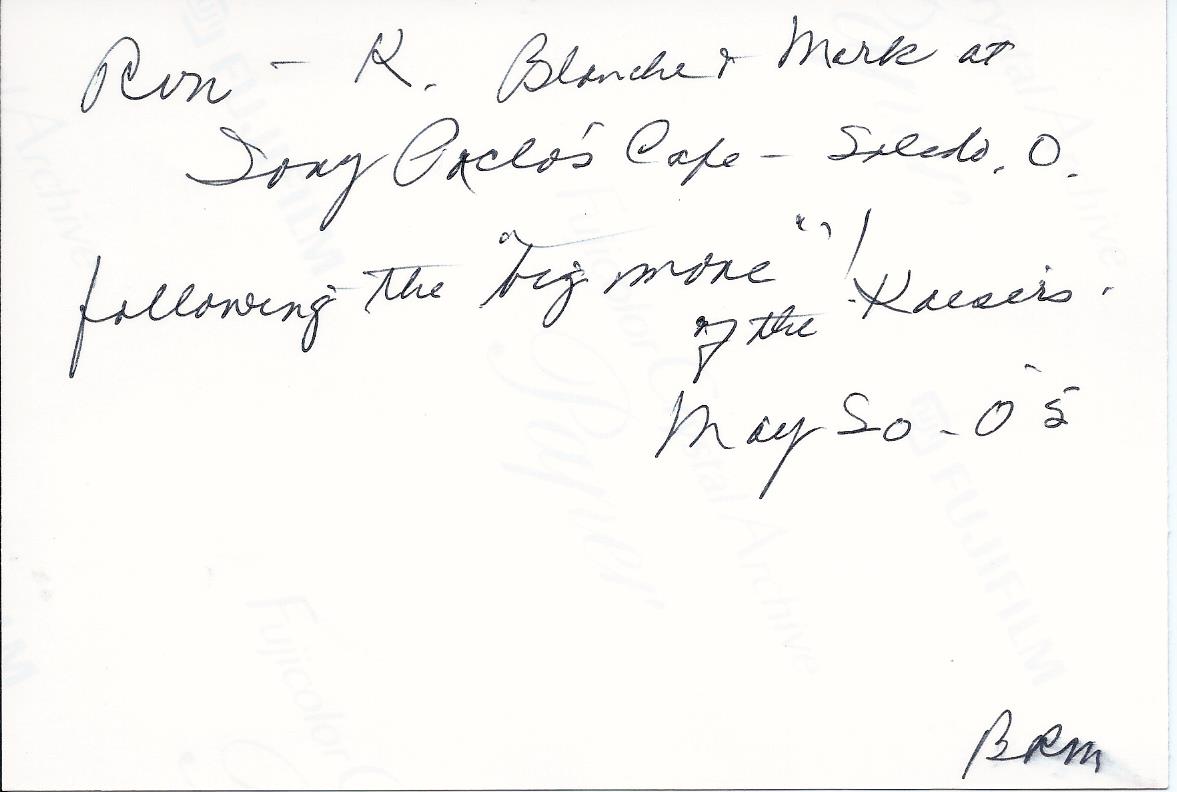 Ron - K. Blanche & Mark at
Tony Packo's Cafe - Toledo, O.
following the "big move"!
of the Kaesers.
May - 05
BRM
FUJIFILM
Fujicolor Crystal Archive
Paper
FUJIFILM
Fujicolor